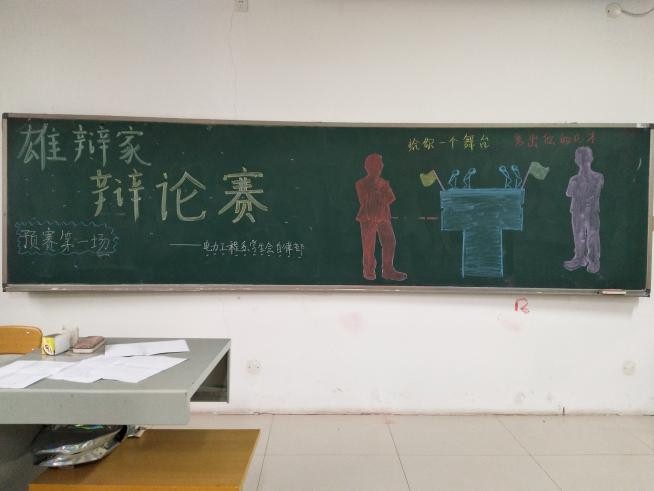 雄辩家
辩论赛
预赛第一场
——电力工程系学生会自律部
给你一个舞台
秀出你的口才